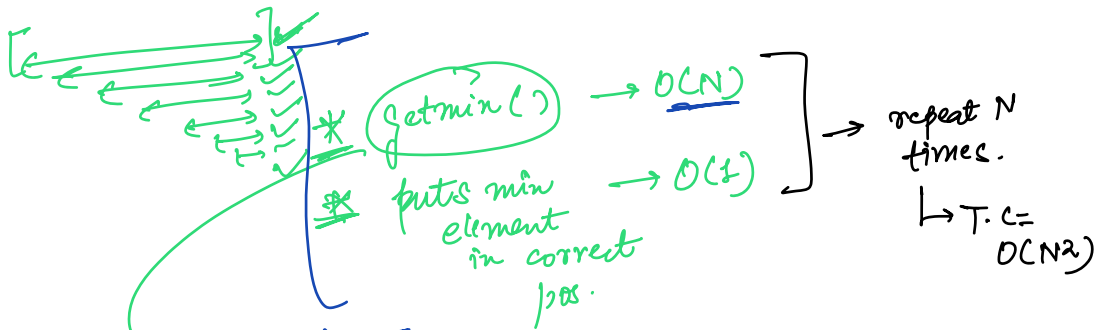 * getmin() → O(N)
* puts min → O(1)
element
in correct
pos.
→ repeat N
times.
↳ T.C=
O(N2)